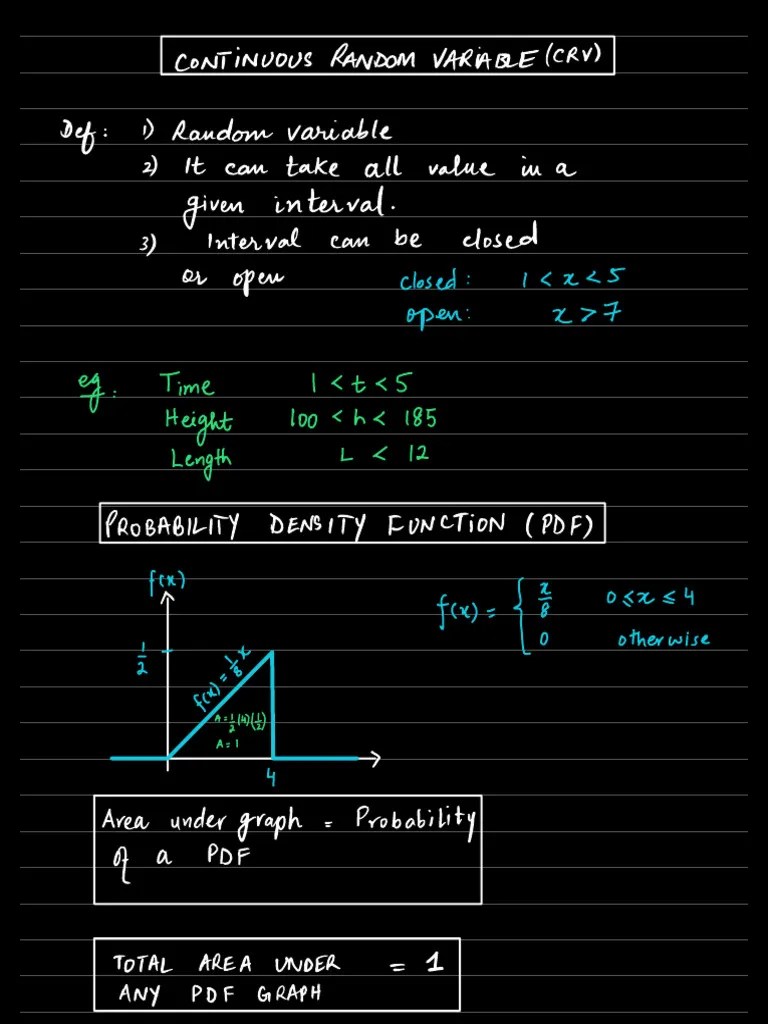 CONTINUOUS RANDOM VARIABLE (CRV)
Def: 1) Random variable
2) It can take all value in a
given interval.
3) Interval can be closed
or open
closed: 1 < x < 5
open: x > 7
eg: Time 1 < t < 5
Height 100 < h < 185
Length L < 12
PROBABILITY DENSITY FUNCTION (PDF)
f(x)
f(x) = { x/8 0 ≤ x ≤ 4
0 otherwise
1/2
f(x) = 1/8 x
A = 1/2 (4)(1/2)
A = 1
4
Area under graph = Probability
of a PDF
TOTAL AREA UNDER = 1
ANY PDF GRAPH